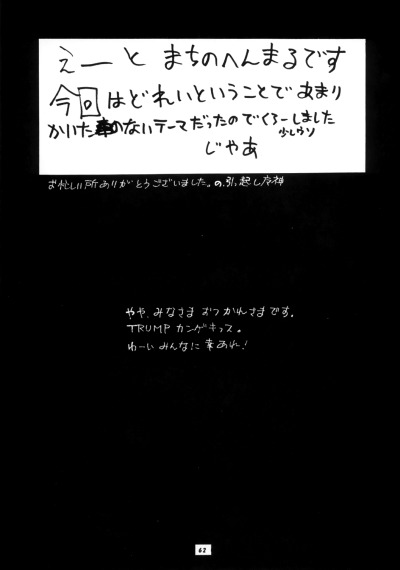 えーと まちのへんまるです
今回はどれいということであまり
かいた事のないテーマだったのでくろーしました
少しウソ
じゃあ
お忙しい所ありがとうございました。の、引っ起し女神
やや、みなさま おつかれさまです。
TRUMP カンゲキっス。
わーい みんなに幸あれ!
62